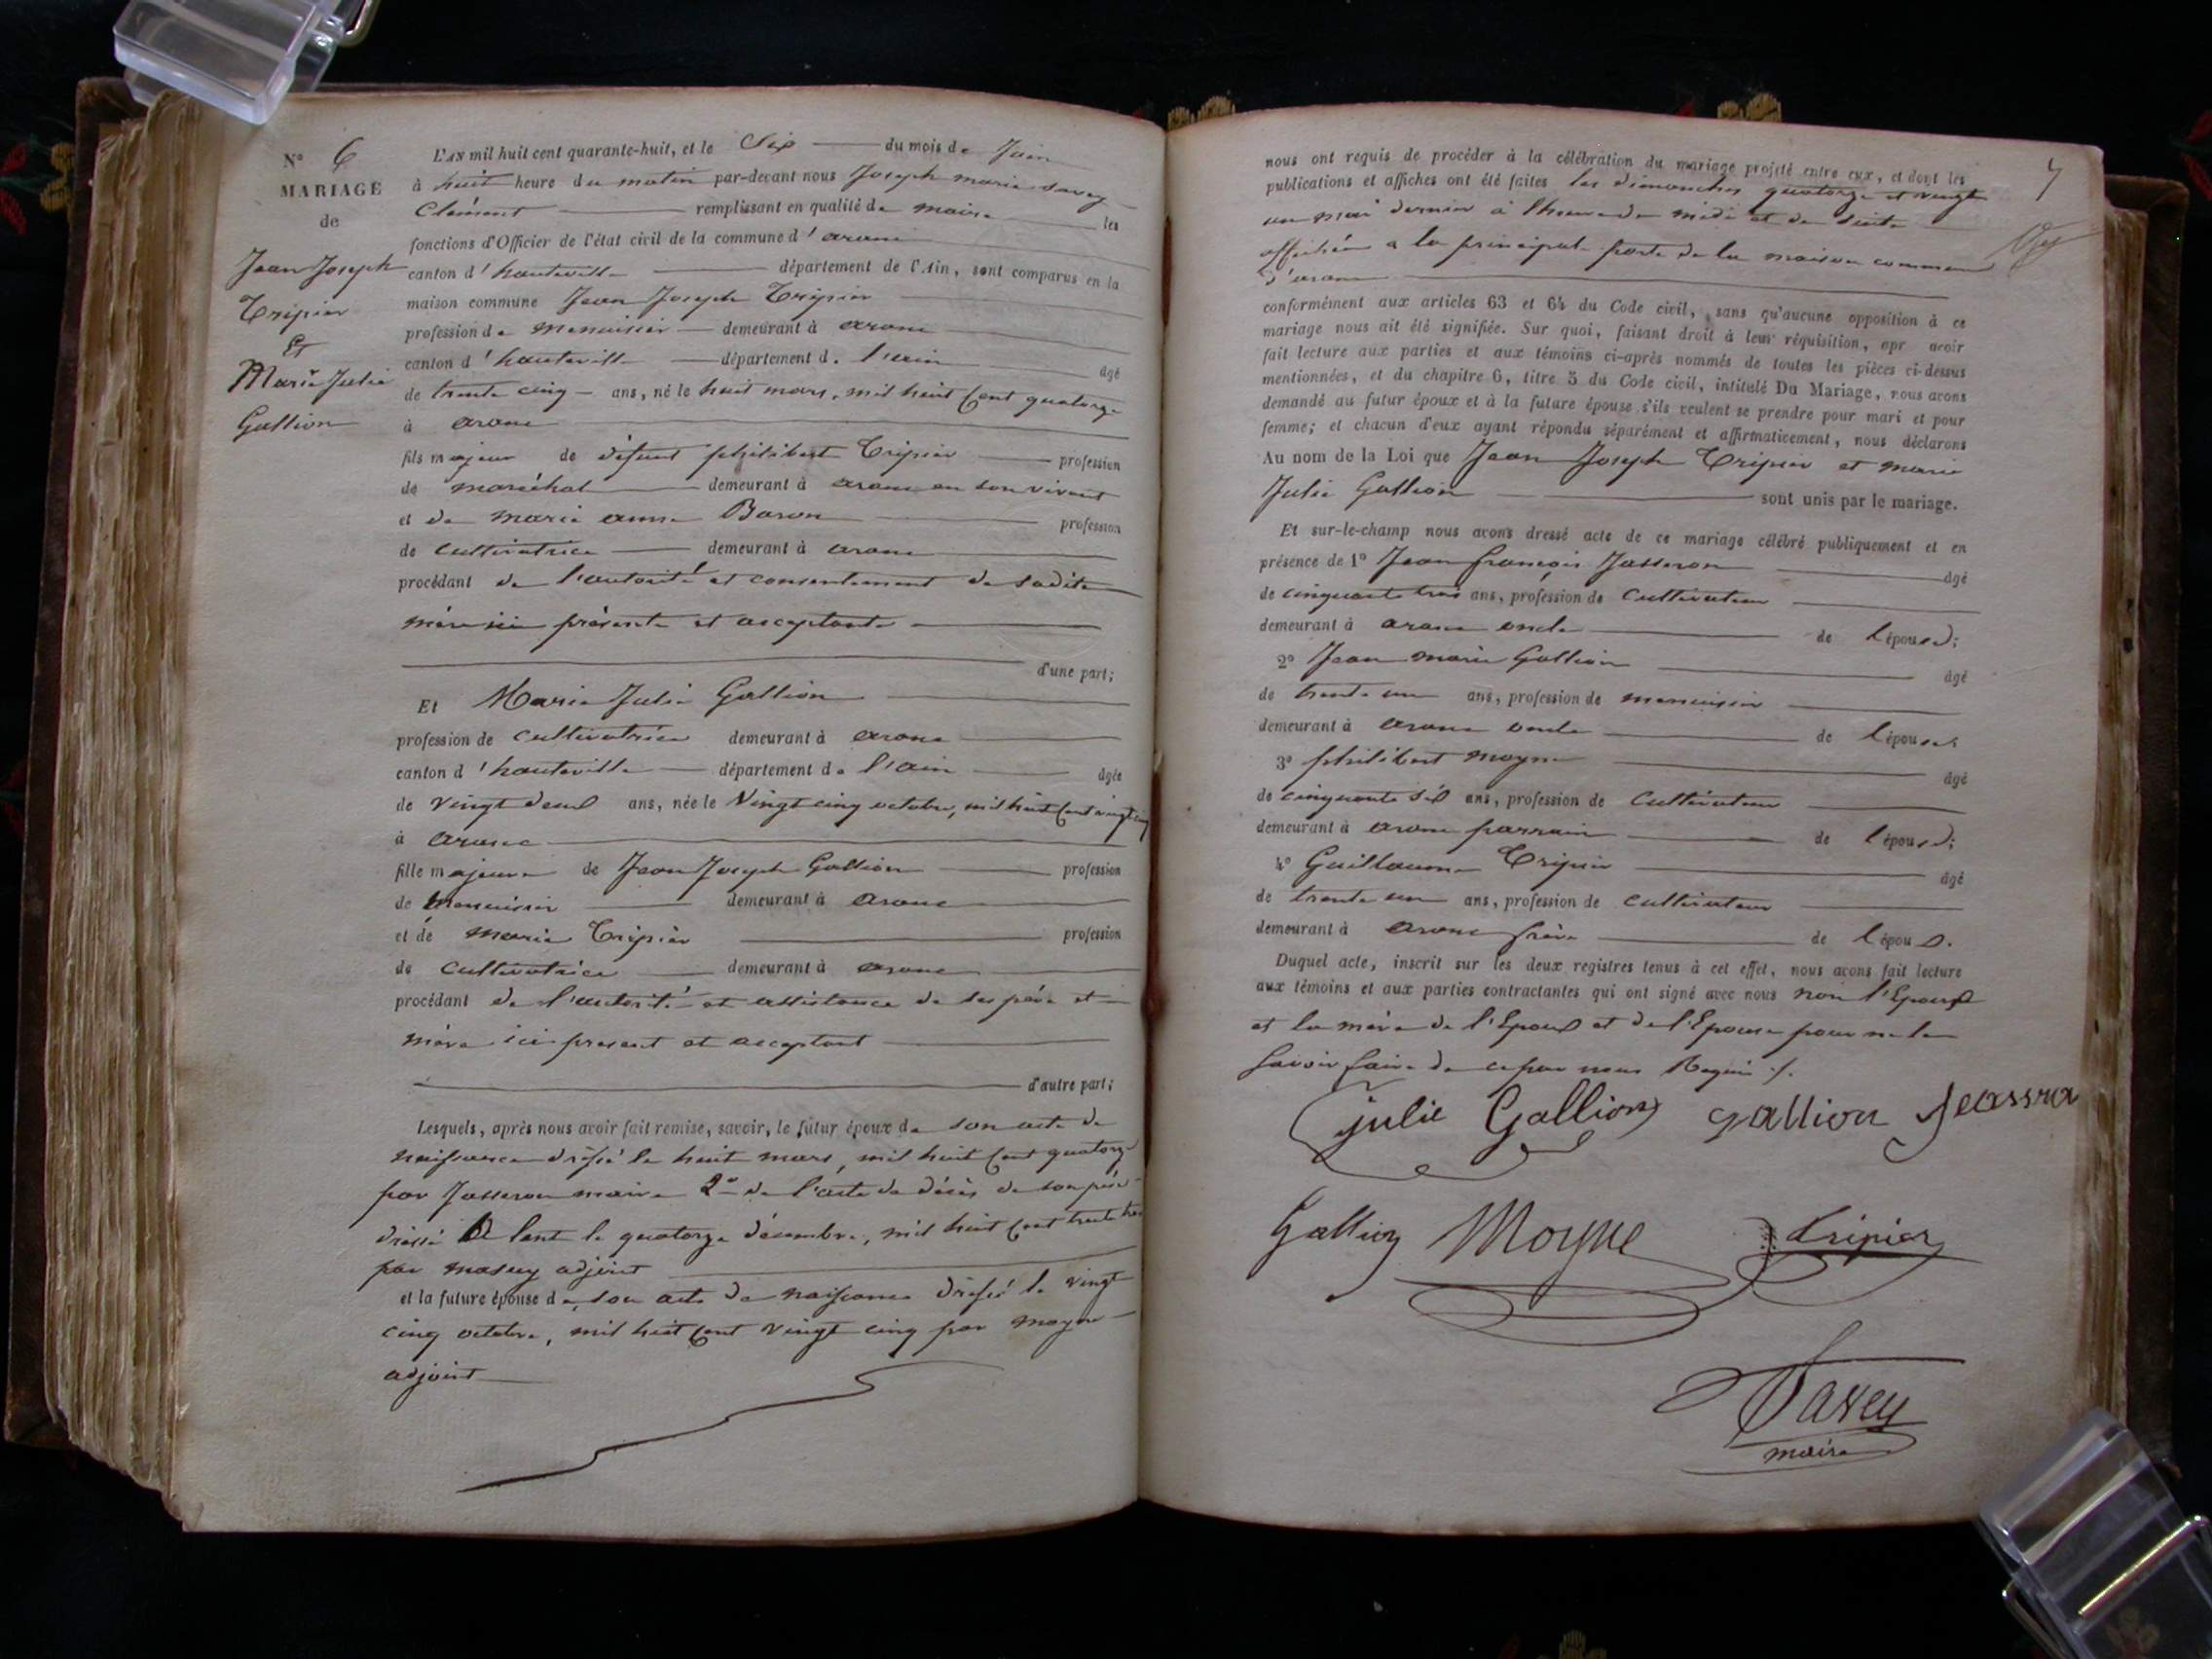 N° 6
MARIAGE
de
Jean Joseph
Tripier
Et
Marie Julie
Gallion
L'AN mil huit cent quarante-huit, et le Six du mois de Juin
à huit heure du matin par-devant nous Joseph marie Savey
Clément remplissant en qualité de maire les
fonctions d'Officier de l'état civil de la commune d'aranc
canton d'hauteville département de l'Ain, sont comparus en la
maison commune Jean Joseph Tripier
profession de menuisier demeurant à aranc
canton d'hauteville département de l'ain âgé
de trente cinq ans, né le huit mars, mil huit Cent quatorze
à aranc
fils majeur de défunt philibert Tripier profession
de maréchal demeurant à aranc en son vivant
et de marie anne Baron profession
de cultivatrice demeurant à aranc
procédant de l'autorité et consentement de sadite
mère ici présente et acceptante
d'une part;
Et Marie Julie Gallion
profession de cultivatrice demeurant à aranc
canton d'hauteville département de l'ain âgée
de vingt deux ans, née le Vingt cinq octobre, mil huit Cent vingt cinq
à aranc
fille majeure de Jean Joseph Gallion profession
de menuisier demeurant à aranc
et de marie Tripier profession
de cultivatrice demeurant à aranc
procédant de l'autorité et assistance de ses père et
mère ici present et acceptant
d'autre part;
Lesquels, après nous avoir fait remise, savoir, le futur époux de son acte de
naissance dréssé le huit mars, mil huit Cent quatorze
par Jasseron maire 2° de l'acte de décès de son père
dréssé le quatorze décembre, mil huit Cent trente trois
par adjoint
et la future épouse de son acte de naissance dréssé le vingt
cinq octobre, mil huit Cent vingt cinq par moyne
adjoint
7
nous ont requis de procéder à la célébration du mariage projeté entre eux, et dont les
publications et affiches ont été faites les dimanches quatorze et vingt
un mai dernier à l'heure de midi et de suite
affichée a la principale porte de la maison commune
d'aranc
conformément aux articles 63 et 64 du Code civil, sans qu'aucune opposition à ce
mariage nous ait été signifiée. Sur quoi, faisant droit à leur réquisition, apr avoir
fait lecture aux parties et aux témoins ci-après nommés de toutes les pièces ci-dessus
mentionnées, et du chapitre 6, titre 5 du Code civil, intitulé Du Mariage, nous avons
demandé au futur époux et à la future épouse s'ils veulent se prendre pour mari et pour
femme; et chacun d'eux ayant répondu séparément et affirmativement, nous déclarons
Au nom de la Loi que Jean Joseph Tripier et marie
Julie Gallion sont unis par le mariage.
Et sur-le-champ nous avons dressé acte de ce mariage célébré publiquement et en
présence de 1° Jean françois Jasseron âgé
de cinquante trois ans, profession de Cultivateur
demeurant à aranc oncle de l'épouse;
2° Jean marie Gallion âgé
de trente un ans, profession de menuisier
demeurant à aranc oncle de l'épouse;
3° philibert moyne âgé
de cinquante six ans, profession de Cultivateur
demeurant à aranc parrain de l'épouse;
4° Guillaume Tripier âgé
de trente un ans, profession de cultivateur
demeurant à aranc frère de l'époux.
Duquel acte, inscrit sur les deux registres tenus à cet effet, nous avons fait lecture
aux témoins et aux parties contractantes qui ont signé avec nous non l'Epoux
et la mère de l'Epoux et de l'Epouse pour ne le
Savoir faire de ce par nous Requis ./.
julie Gallion gallion Jeassra
Gallion Moyne tripier
Savey
maire